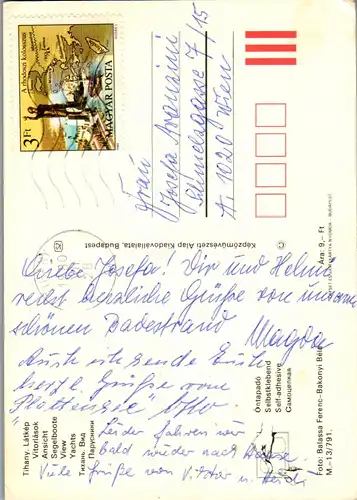 A rhodosi kolosszus
3 Ft
MAGYAR POSTA
Frau
Josefa
7/15
A. 1020 Wien
Képzőművészeti Alap Kiadóvállalata, Budapest
©
Ára: 9,- Ft
Liebe Josefa! Dir und Helmi
recht herzliche Grüße von unserem
schönen Badestrand
Magda
herzl. Grüße vom
"Plattensee" Otto
Leider fahren wir
bald wieder nach Hause.
Viele Grüße von Viktor u. Heidi
Tihany. Látkép
Vitorlások
Ansicht
Segelboote
View
Yachts
Тихань. Вид
Парусники
Öntapadó
Selbstklebend
Self-adhesive
Самоцепкая
Foto: Balassa Ferenc-Bakonyi Béla
M.-13/791.